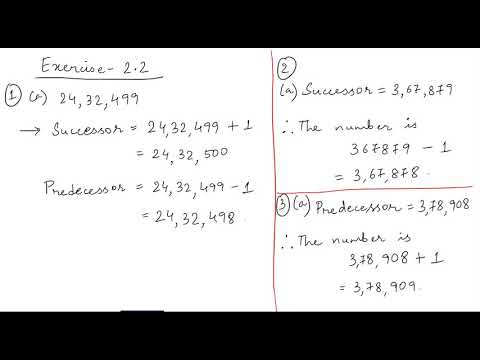 Exercise - 2.2
① (a) 24,32,499
→ Successor = 24,32,499 + 1
= 24,32,500
Predecessor = 24,32,499 - 1
= 24,32,498.
②
(a) Successor = 3,67,879
∴ The number is
367879 - 1
= 3,67,878.
③ (a) Predecessor = 3,78,908
∴ The number is
3,78,908 + 1
= 3,78,909.